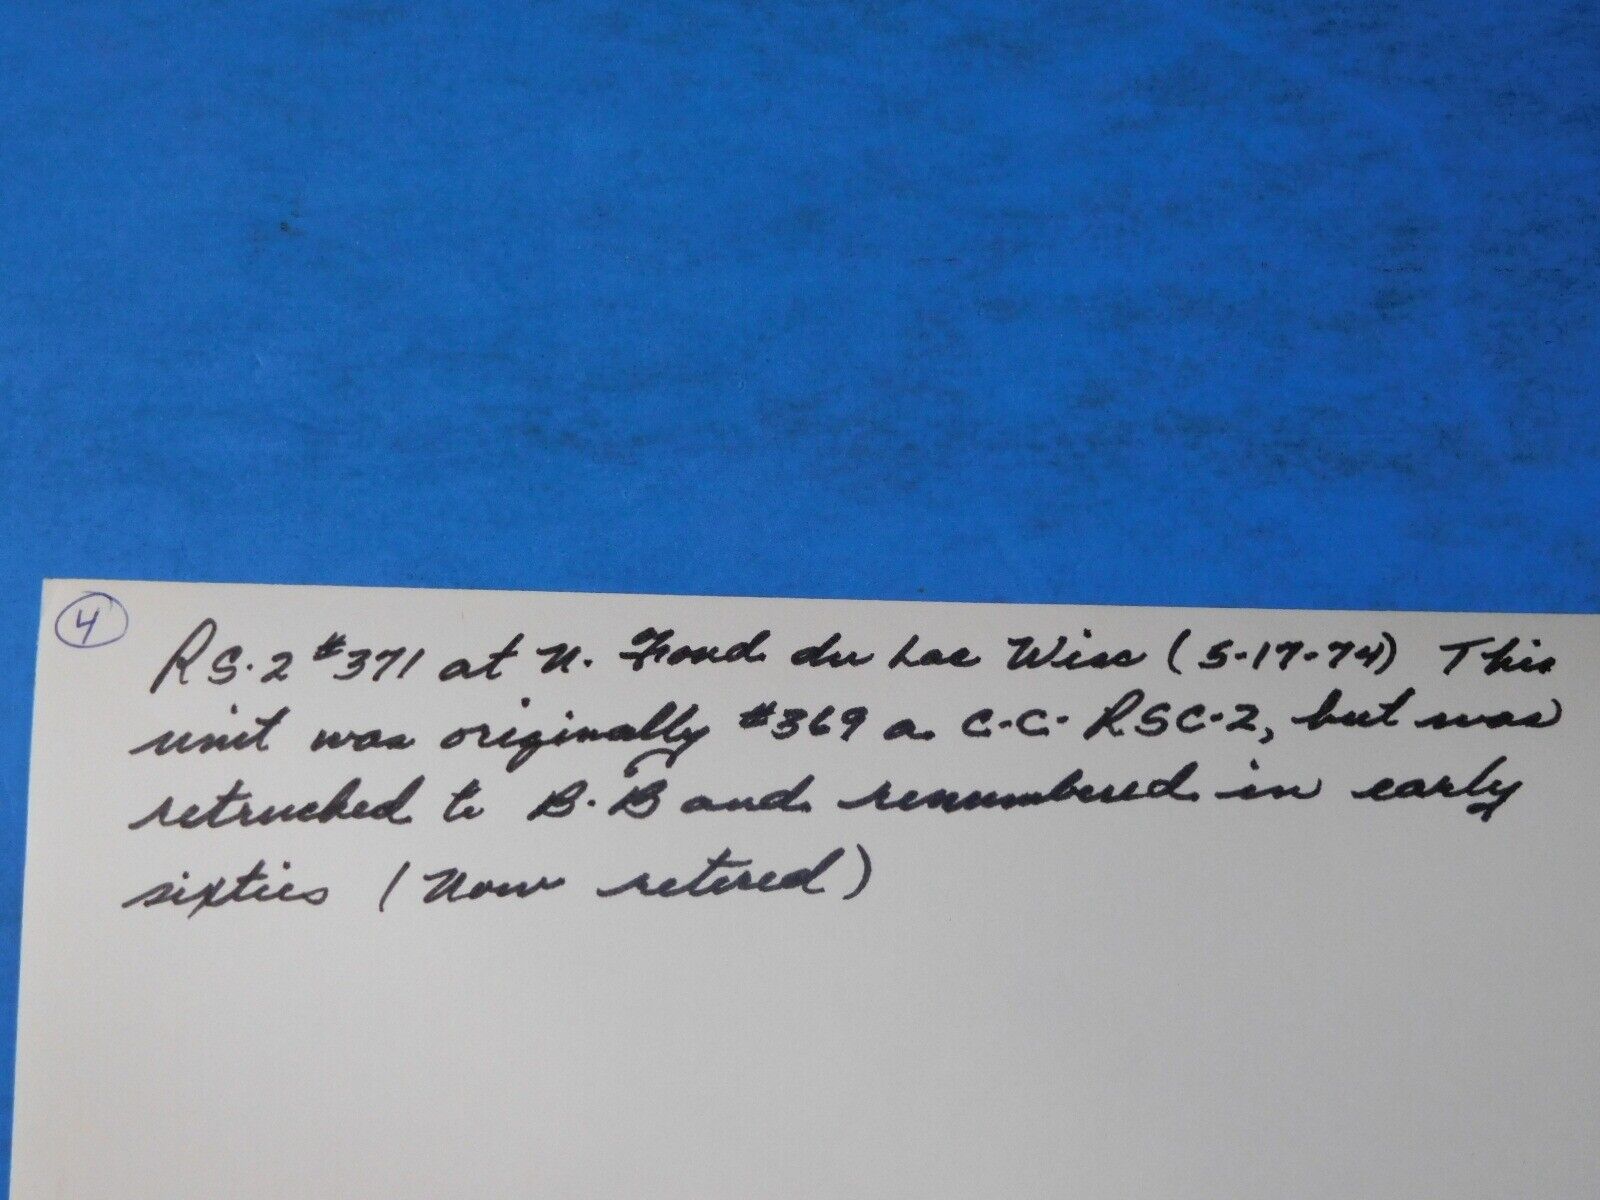 4
RS-2 #371 at N. Fond du Lac Wisc (5-17-74) This
unit was originally #369 a C-C- RSC-2, but was
retrucked to B-B and renumbered in early
sixties (Now retired)